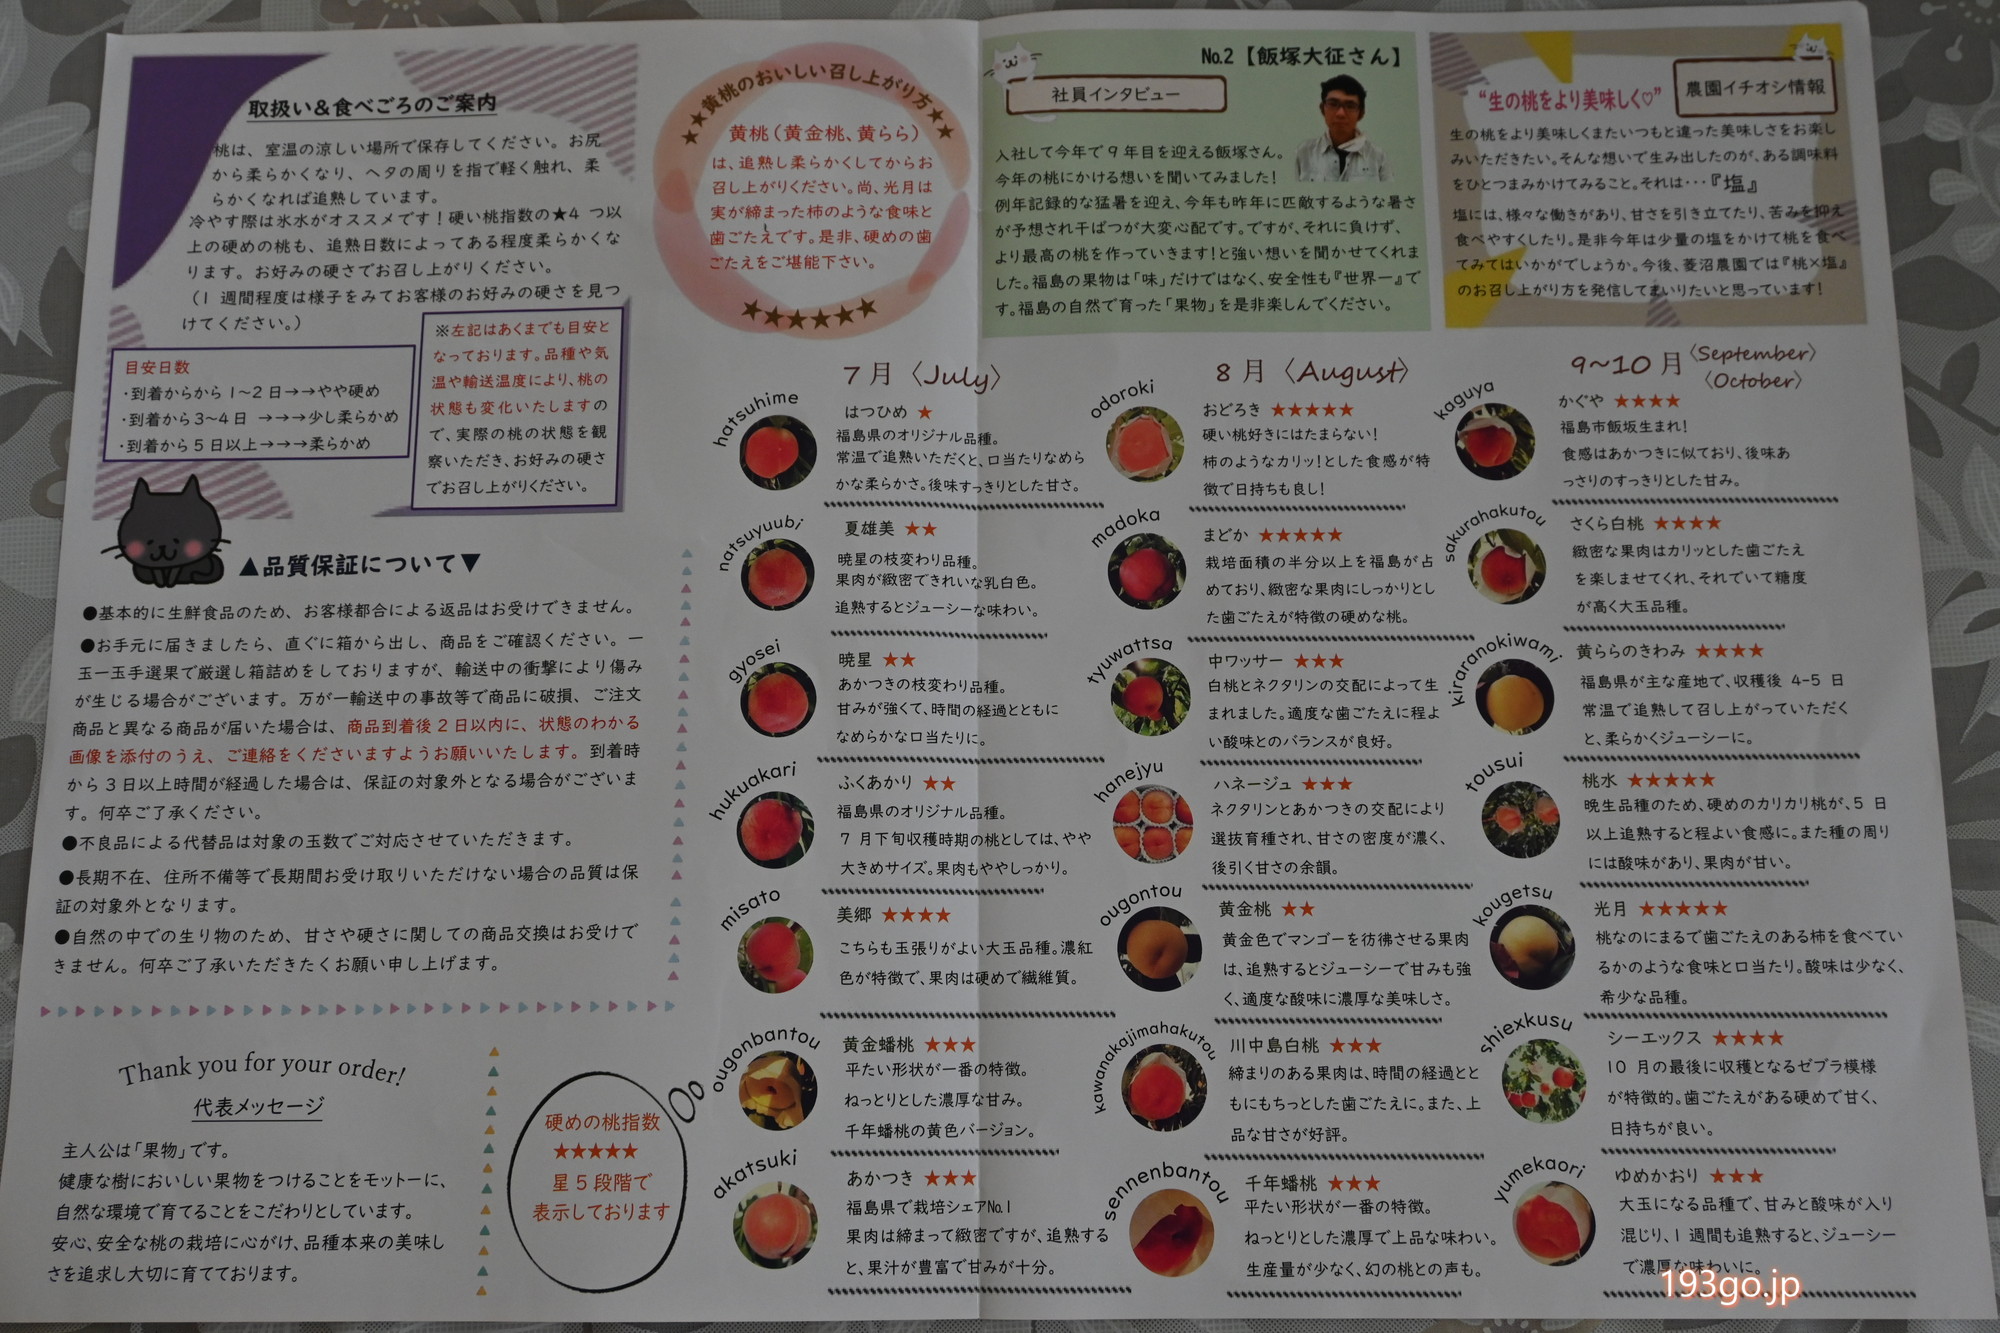 取扱い&食べごろのご案内
桃は、室温の涼しい場所で保存してください。お尻
から柔らかくなり、ヘタの周りを指で軽く触れ、柔
らかくなれば追熟しています。
冷やす際は氷水がオススメです！硬い桃指数の★4 つ以
上の硬めの桃も、追熟日数によってある程度柔らかくな
ります。お好みの硬さでお召し上がりください。
（1 週間程度は様子をみてお客様のお好みの硬さを見つ
けてください。）
目安日数
・到着からから 1〜2 日→→やや硬め
・到着から3〜4 日 →→→少し柔らかめ
・到着から 5 日以上→→→柔らかめ
※左記はあくまでも目安と
なっております。品種や気
温や輸送温度により、桃の
状態も変化いたしますの
で、実際の桃の状態を観
察いただき、お好みの硬さ
でお召し上がりください。
▲品質保証について▼
●基本的に生鮮食品のため、お客様都合による返品はお受けできません。
●お手元に届きましたら、直ぐに箱から出し、商品をご確認ください。一
玉一玉手選果で厳選し箱詰めをしておりますが、輸送中の衝撃により傷み
が生じる場合がございます。万が一輸送中の事故等で商品に破損、ご注文
商品と異なる商品が届いた場合は、商品到着後 2 日以内に、状態のわかる
画像を添付のうえ、ご連絡をくださいますようお願いいたします。到着時
から 3 日以上時間が経過した場合は、保証の対象外となる場合がございま
す。何卒ご了承ください。
●不良品による代替品は対象の玉数でご対応させていただきます。
●長期不在、住所不備等で長期間お受け取りいただけない場合の品質は保
証の対象外となります。
●自然の中での生り物のため、甘さや硬さに関しての商品交換はお受けで
きません。何卒ご了承いただきたくお願い申し上げます。
Thank you for your order!
代表メッセージ
主人公は「果物」です。
健康な樹においしい果物をつけることをモットーに、
自然な環境で育てることをこだわりとしています。
安心、安全な桃の栽培に心がけ、品種本来の美味し
さを追求し大切に育てております。
硬めの桃指数
★★★★★
星 5 段階で
表示しております
★★黄桃のおいしい召し上がり方★★
黄桃（黄金桃、黄らら）
は、追熟し柔らかくしてからお
召し上がりください。尚、光月は
実が締まった柿のような食味と
歯ごたえです。是非、硬めの歯
ごたえをご堪能下さい。
★★★★★★
No.2【飯塚大征さん】
社員インタビュー
入社して今年で 9 年目を迎える飯塚さん。
今年の桃にかける想いを聞いてみました！
例年記録的な猛暑を迎え、今年も昨年に匹敵するような暑さ
が予想され干ばつが大変心配です。ですが、それに負けず、
より最高の桃を作っていきます！と強い想いを聞かせてくれま
した。福島の果物は「味」だけではなく、安全性も『世界一』で
す。福島の自然で育った「果物」を是非楽しんでください。
農園イチオシ情報
“生の桃をより美味しく♡”
生の桃をより美味しくまたいつもと違った美味しさをお楽し
みいただきたい。そんな想いで生み出したのが、ある調味料
をひとつまみかけてみること。それは・・・『塩』
塩には、様々な働きがあり、甘さを引き立てたり、苦みを抑え
食べやすくしたり。是非今年は少量の塩をかけて桃を食べ
てみてはいかがでしょうか。今後、菱沼農園では『桃×塩』
のお召し上がり方を発信してまいりたいと思っています！
7 月〈July〉
hatsuhime
はつひめ ★
福島県のオリジナル品種。
常温で追熟いただくと、口当たりなめら
かな柔らかさ。後味すっきりとした甘さ。
natsuyuubi
夏雄美 ★★
暁星の枝変わり品種。
果肉が緻密できれいな乳白色。
追熟するとジューシーな味わい。
gyosei
暁星 ★★
あかつきの枝変わり品種。
甘みが強くて、時間の経過とともに
なめらかな口当たりに。
hukuakari
ふくあかり ★★
福島県のオリジナル品種。
7 月下旬収穫時期の桃としては、やや
大きめサイズ。果肉もややしっかり。
misato
美郷 ★★★★
こちらも玉張りがよい大玉品種。濃紅
色が特徴で、果肉は硬めで繊維質。
ougonbantou
黄金蟠桃 ★★★
平たい形状が一番の特徴。
ねっとりとした濃厚な甘み。
千年蟠桃の黄色バージョン。
akatsuki
あかつき ★★★
福島県で栽培シェアNo.1
果肉は締まって緻密ですが、追熟する
と、果汁が豊富で甘みが十分。
8 月〈August〉
odoroki
おどろき ★★★★★
硬い桃好きにはたまらない！
柿のようなカリッ！とした食感が特
徴で日持ちも良し！
madoka
まどか ★★★★★
栽培面積の半分以上を福島が占
めており、緻密な果肉にしっかりとし
た歯ごたえが特徴の硬めな桃。
tyuwattsa
中ワッサー ★★★
白桃とネクタリンの交配によって生
まれました。適度な歯ごたえに程よ
い酸味とのバランスが良好。
hanejyu
ハネージュ ★★★
ネクタリンとあかつきの交配により
選抜育種され、甘さの密度が濃く、
後引く甘さの余韻。
ougontou
黄金桃 ★★
黄金色でマンゴーを彷彿させる果肉
は、追熟するとジューシーで甘みも強
く、適度な酸味に濃厚な美味しさ。
kawanakajimahakutou
川中島白桃 ★★★
締まりのある果肉は、時間の経過とと
もにもちっとした歯ごたえに。また、上
品な甘さが好評。
sennenbantou
千年蟠桃 ★★★
平たい形状が一番の特徴。
ねっとりとした濃厚で上品な味わい。
生産量が少なく、幻の桃との声も。
9〜10 月〈September〉
〈October〉
kaguya
かぐや ★★★★
福島市飯坂生まれ！
食感はあかつきに似ており、後味あ
っさりのすっきりとした甘み。
sakurahakutou
さくら白桃 ★★★★
緻密な果肉はカリッとした歯ごたえ
を楽しませてくれ、それでいて糖度
が高く大玉品種。
kiraranokiwami
黄ららのきわみ ★★★★
福島県が主な産地で、収穫後 4-5 日
常温で追熟して召し上がっていただく
と、柔らかくジューシーに。
tousui
桃水 ★★★★★
晩生品種のため、硬めのカリカリ桃が、5 日
以上追熟すると程よい食感に。また種の周り
には酸味があり、果肉が甘い。
kougetsu
光月 ★★★★★
桃なのにまるで歯ごたえのある柿を食べてい
るかのような食味と口当たり。酸味は少なく、
希少な品種。
shiexkusu
シーエックス ★★★★
10 月の最後に収穫となるゼブラ模様
が特徴的。歯ごたえがある硬めで甘く、
日持ちが良い。
yumekaori
ゆめかおり ★★★
大玉になる品種で、甘みと酸味が入り
混じり、1 週間も追熟すると、ジューシー
で濃厚な味わいに。
193go.jp